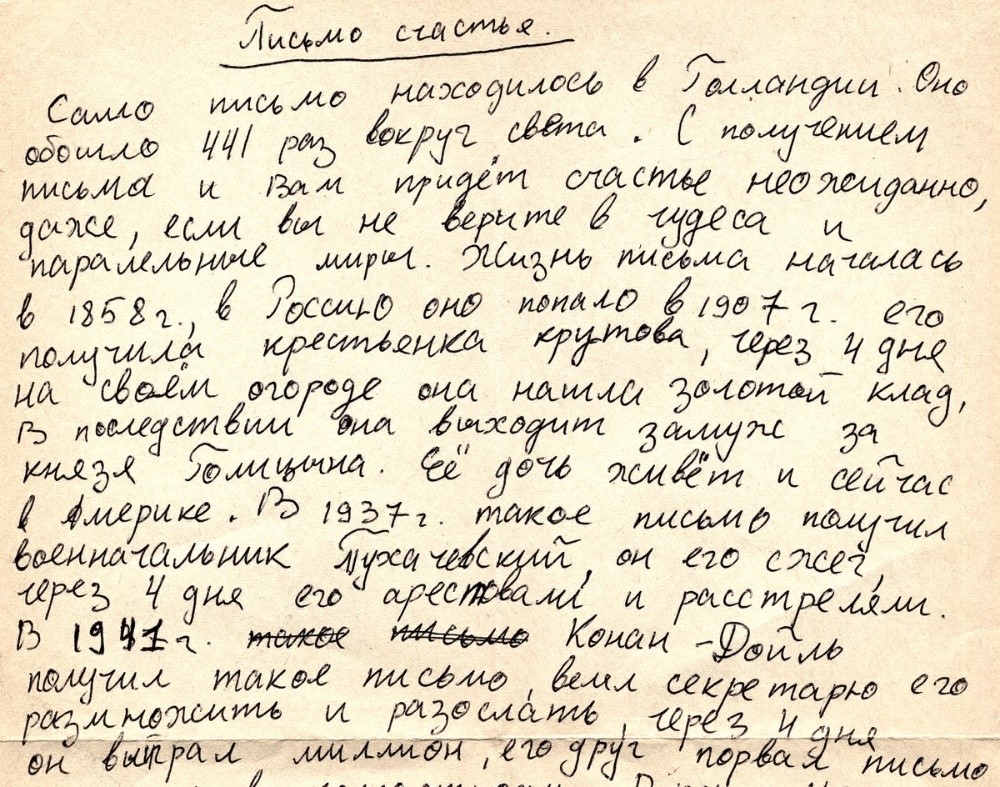 Письмо счастья.
Само письмо находилось в Голландии. Оно
обошло 441 раз вокруг света. С получением
письма и Вам придёт счастье неожиданно,
даже, если вы не верите в чудеса и
паралельные миры. Жизнь письма началась
в 1858г., в Россию оно попало в 1907г. его
получила крестьянка крутова, через 4 дня
на своём огороде она нашла золотой клад,
В последствии она выходит замуж за
князя Голицына. Её дочь живёт и сейчас
в Америке. В 1937г. такое письмо получил
военначальник Тухачевский, он его сжег,
через 4 дня его арестовали и расстреляли.
В 1941г. такое письмо Конан-Дойль
получил такое письмо, велел секретарю его
размножить и разослать, через 4 дня
он выйграл миллион, его друг порвал письмо